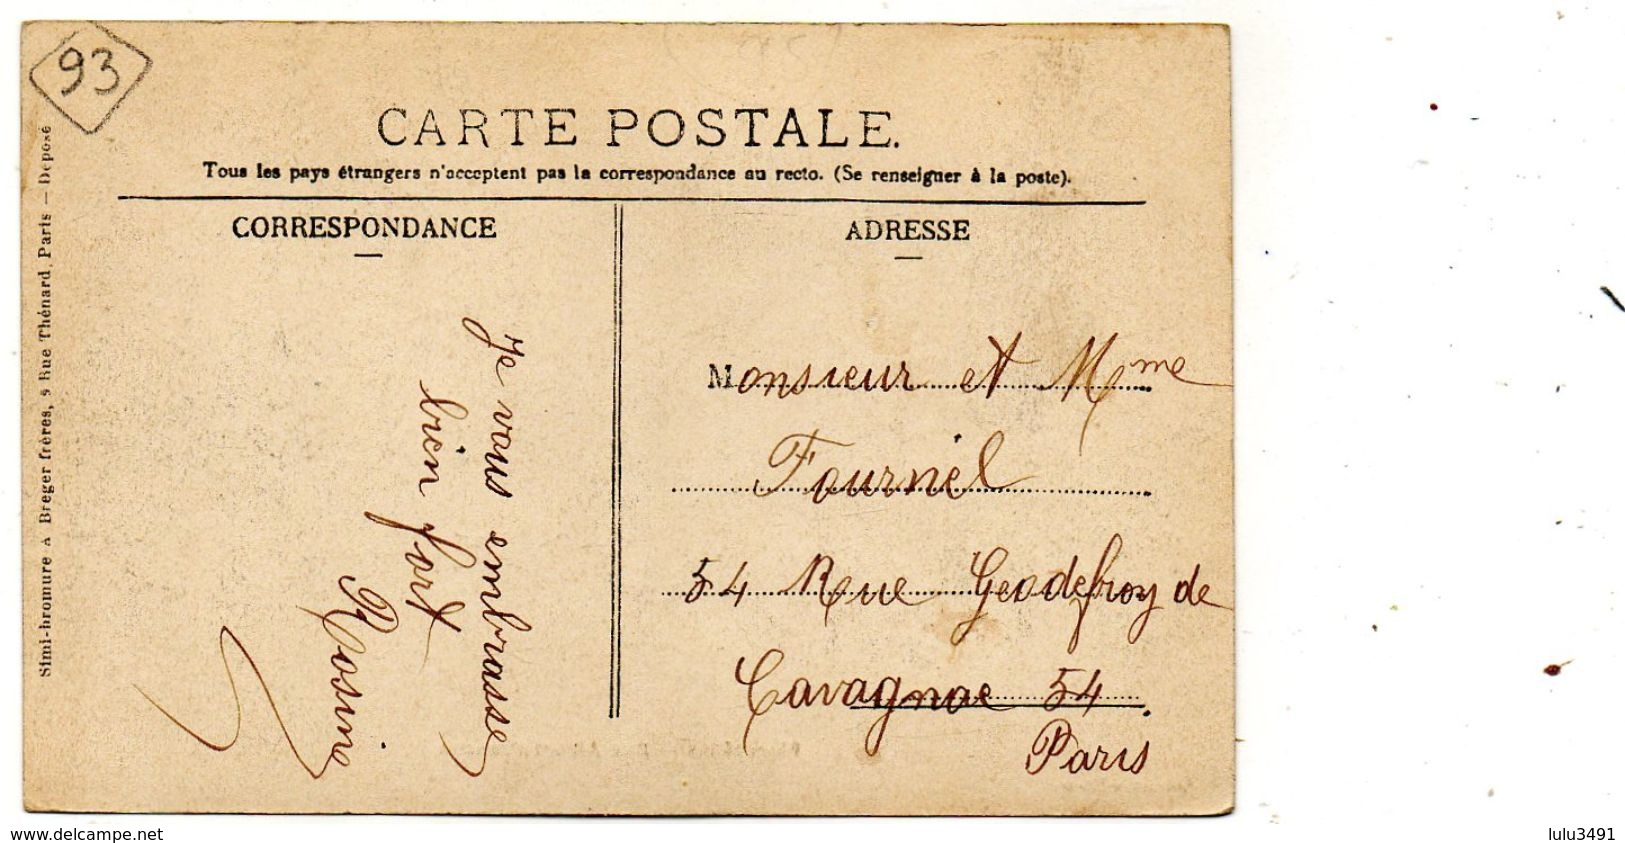 93
CARTE POSTALE.
Tous les pays étrangers n'acceptent pas la correspondance au recto. (Se renseigner à la poste).
CORRESPONDANCE
ADRESSE
Simi-bromure A Breger frères, 9 Rue Thénard, Paris — Déposé
Je vous embrasse
bien fort
Rosine
Monsieur et Mme
Fournel
54 Rue Geodefroy de
Cavagnac 54
Paris
www.delcampe.net
lulu3491